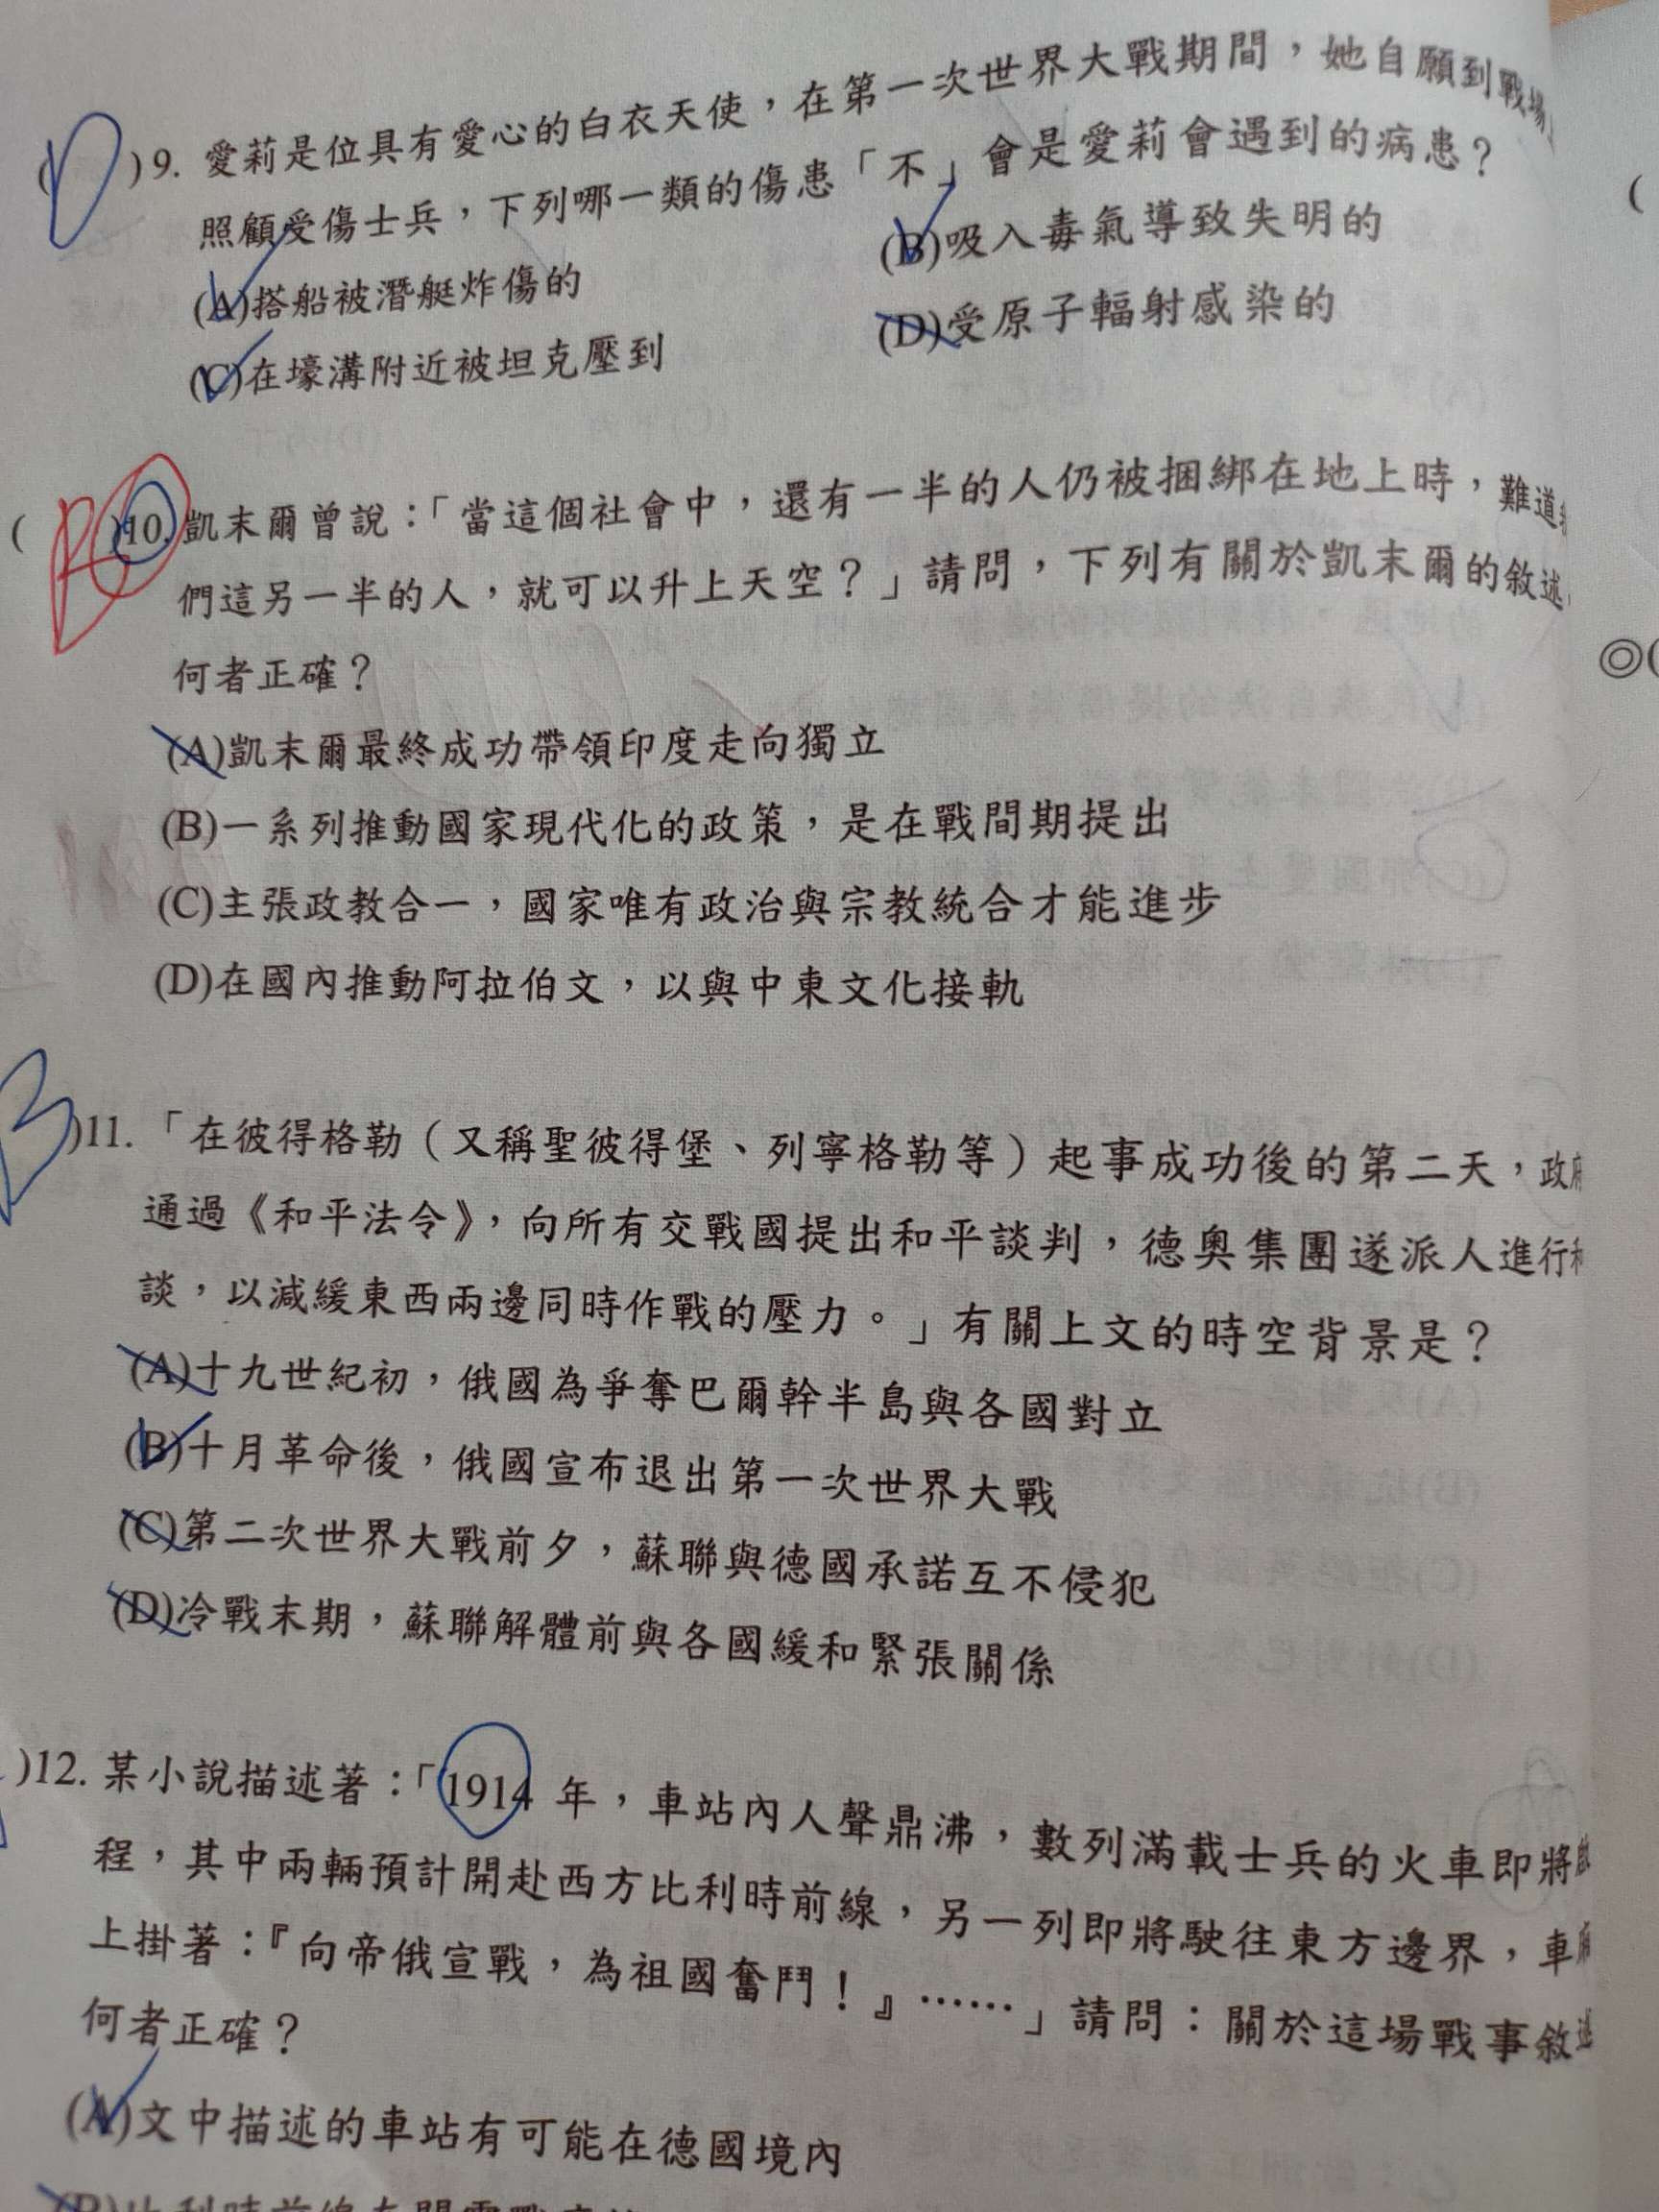 D
( )9. 愛莉是位具有愛心的白衣天使，在第一次世界大戰期間，她自願到戰場
照顧受傷士兵，下列哪一類的傷患「不」會是愛莉會遇到的病患？
(A)搭船被潛艇炸傷的 (B)吸入毒氣導致失明的
(C)在壕溝附近被坦克壓到 (D)受原子輻射感染的
B
( )10. 凱末爾曾說：「當這個社會中，還有一半的人仍被捆綁在地上時，難道
們這另一半的人，就可以升上天空？」請問，下列有關於凱末爾的敘述，
何者正確？
(A)凱末爾最終成功帶領印度走向獨立
(B)一系列推動國家現代化的政策，是在戰間期提出
(C)主張政教合一，國家唯有政治與宗教統合才能進步
(D)在國內推動阿拉伯文，以與中東文化接軌
B
)11. 「在彼得格勒（又稱聖彼得堡、列寧格勒等）起事成功後的第二天，政府
通過《和平法令》，向所有交戰國提出和平談判，德奧集團遂派人進行
談，以減緩東西兩邊同時作戰的壓力。」有關上文的時空背景是？
(A)十九世紀初，俄國為爭奪巴爾幹半島與各國對立
(B)十月革命後，俄國宣布退出第一次世界大戰
(C)第二次世界大戰前夕，蘇聯與德國承諾互不侵犯
(D)冷戰末期，蘇聯解體前與各國緩和緊張關係
)12. 某小說描述著：「1914 年，車站內人聲鼎沸，數列滿載士兵的火車即將
程，其中兩輛預計開赴西方比利時前線，另一列即將駛往東方邊界，車
上掛著：『向帝俄宣戰，為祖國奮鬥！』……」請問：關於這場戰事敘述
何者正確？
(A)文中描述的車站有可能在德國境內